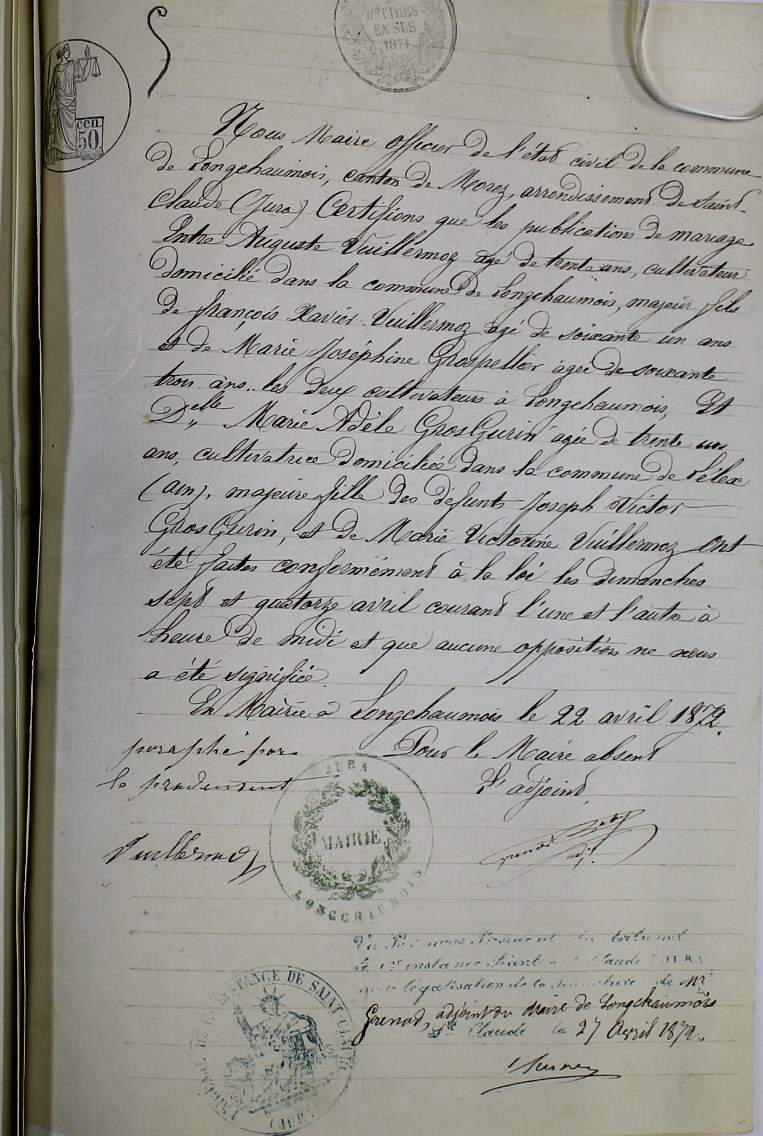 DÉCIMES
EN SUS
1871
cen
50
Nous Maire officier de l'état civil de la commune
de Longchaumois, canton de Morez, arrondissement de Saint-
Claude (Jura) Certifions que les publications de mariage
Entre Auguste Vuillermoz agé de trente ans, cultivateur
domicilié dans la commune de Longchaumois, majeur, fils
de françois Xavier Vuillermoz agé de soixante un ans
et de Marie Joséphine Grospellier âgée de soixante
trois ans.. les deux cultivateurs à Longchaumois, Et
Delle Marie Adèle GrosGurin agée de trente un
ans, cultivatrice domiciliée dans la commune de Lélex
(ain), majeure fille des défunts Joseph Victor
GrosGurin, et de Marie Victorine Vuillermoz ont
été faites conformément à la loi les dimanches
sept et quatorze avril courant l'une et l'autre à
heure de midi et que aucune opposition ne nous
a été signifiée.
En Mairie à Longchaumois le 22 avril 1872.
paraphé par
Pour le Maire absent
L'adjoint
Vuillermoz
JURA
MAIRIE
LONGCHAUMOIS
Vu Par nous Président du tribunal
de 1re instance séant à St Claude JURA
pour légalisation de la signature de Mr
Grenod, adjoint du Maire de Longchaumois
St Claude le 27 Avril 1872.
TRIBUNAL DE 1re INSTANCE DE SAINT CLAUDE
(JURA)